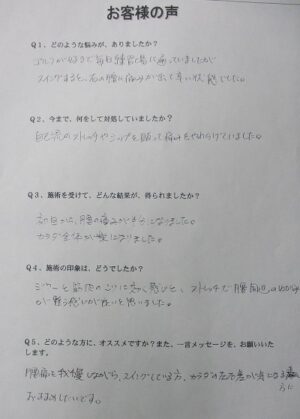 お客様の声
Q1、どのような悩みが、ありましたか?
ゴルフが好きで毎日練習場に通っていましたが
スイングすると、右の腰に痛みが出て辛い状態でした。
Q2、今まで、何をして対処していましたか?
自己流のストレッチやシップを貼って痛みをやわらげていました。
Q3、施術を受けて、どんな結果が、得られましたか?
腰の痛みが楽になりました。
カラダ全体が楽になりました。
Q4、施術の印象は、どうでしたか?
ジワーと筋肉の
が整う感じが良いと思いました。
Q5、どのような方に、オススメですか?また、一言メッセージを、お願いいた
します。
腰痛を我慢しながら、スイングしている方、カラダの左右差が気になる方に
おすすめしたいです。